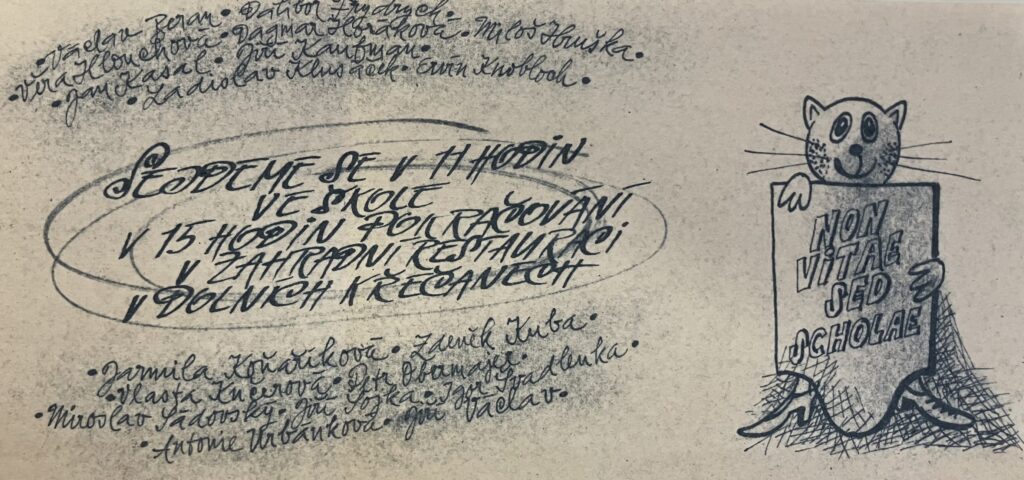 • Václav Beran • Dalibor Frydrych •
• Věra Hlouchová • Dagmar Horáková • Miloš Hruška •
• Jan Kasal • Jiří Kaufman •
• Ladislav Klusáček • Ervín Knobloch •
SEJDEME SE V 11 HODIN
VE ŠKOLE
V 15 HODIN POKRAČOVÁNÍ
V ZAHRADNÍ RESTAURACI
V DOLNÍCH KŘEČANECH
• Jarmila Koňaříková • Zdeněk Kuba •
• Vlasta Kučerová • Petr Obermajer •
• Miroslav Sadovský • Jiří Sojka • Igor Švadlenka •
• Antonie Urbánková • Jiří Václav •
NON
VITAE
SED
SCHOLAE